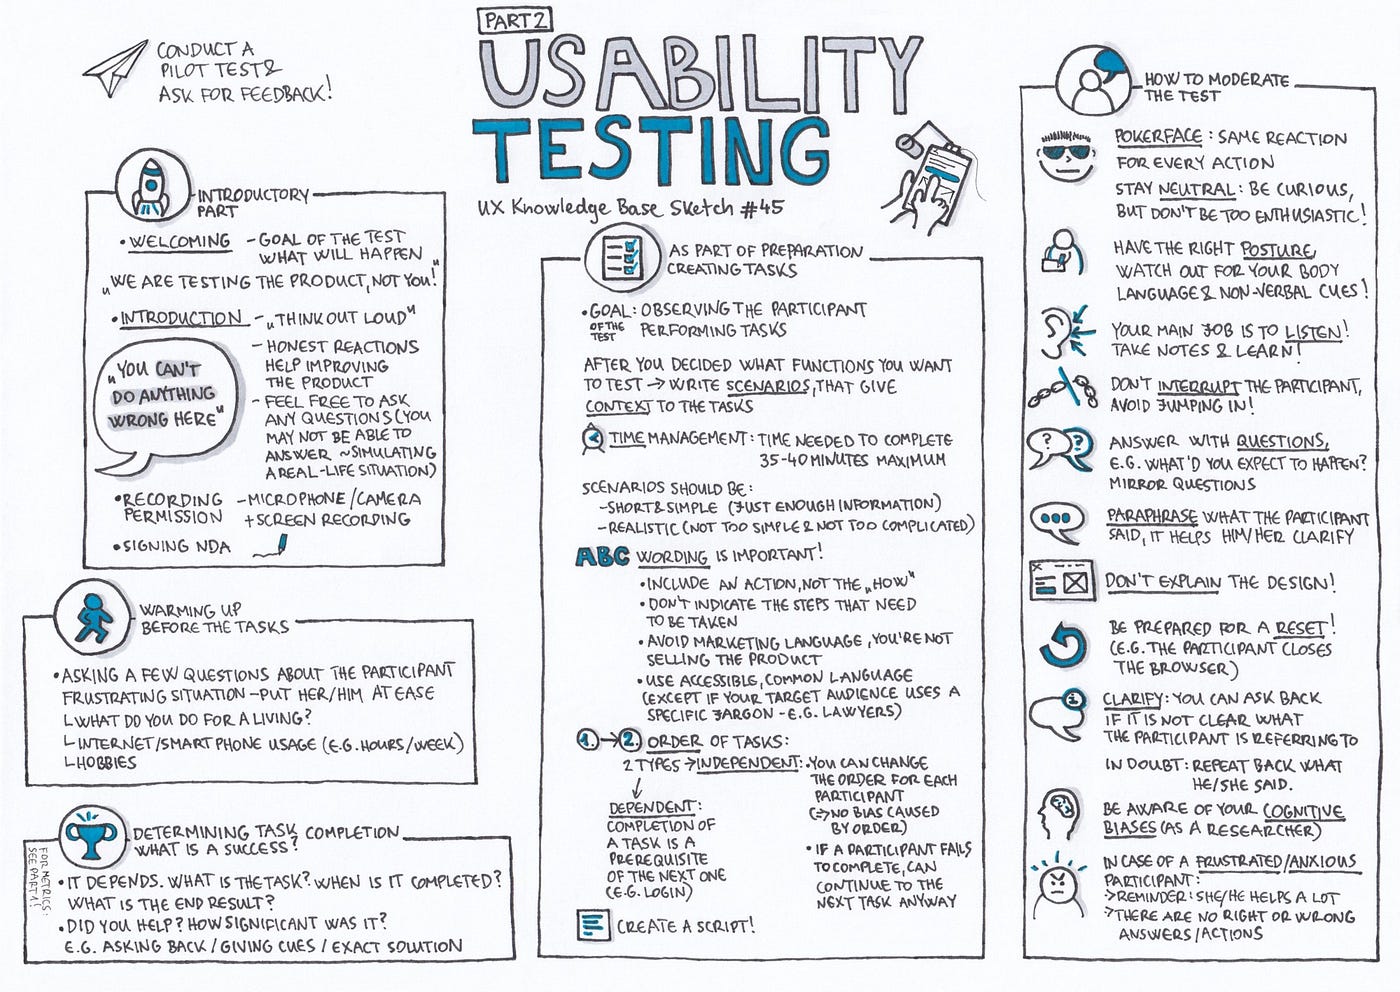 PART 2
USABILITY
TESTING
UX Knowledge Base Sketch #45
CONDUCT A
PILOT TEST &
ASK FOR FEEDBACK!
INTRODUCTORY
PART
• WELCOMING – GOAL OF THE TEST
WHAT WILL HAPPEN
„WE ARE TESTING THE PRODUCT, NOT YOU!"
• INTRODUCTION – „THINK OUT LOUD"
– HONEST REACTIONS
HELP IMPROVING
THE PRODUCT
– FEEL FREE TO ASK
ANY QUESTIONS (YOU
MAY NOT BE ABLE TO
ANSWER ~ SIMULATING
A REAL-LIFE SITUATION)
„YOU CAN'T
DO ANYTHING
WRONG HERE"
• RECORDING – MICROPHONE / CAMERA
PERMISSION + SCREEN RECORDING
• SIGNING NDA
WARMING UP
BEFORE THE TASKS
• ASKING A FEW QUESTIONS ABOUT THE PARTICIPANT
FRUSTRATING SITUATION – PUT HER/HIM AT EASE
└ WHAT DO YOU DO FOR A LIVING?
└ INTERNET/SMARTPHONE USAGE (E.G. HOURS/WEEK)
└ HOBBIES
DETERMINING TASK COMPLETION
WHAT IS A SUCCESS?
FOR METRICS:
SEE PART 1!
• IT DEPENDS. WHAT IS THE TASK? WHEN IS IT COMPLETED?
WHAT IS THE END RESULT?
• DID YOU HELP? HOW SIGNIFICANT WAS IT?
E.G. ASKING BACK / GIVING CUES / EXACT SOLUTION
AS PART OF PREPARATION
CREATING TASKS
• GOAL: OBSERVING THE PARTICIPANT
OF THE TEST PERFORMING TASKS
AFTER YOU DECIDED WHAT FUNCTIONS YOU WANT
TO TEST → WRITE SCENARIOS, THAT GIVE
CONTEXT TO THE TASKS
TIME MANAGEMENT: TIME NEEDED TO COMPLETE
35-40 MINUTES MAXIMUM
SCENARIOS SHOULD BE:
– SHORT & SIMPLE (JUST ENOUGH INFORMATION)
– REALISTIC (NOT TOO SIMPLE & NOT TOO COMPLICATED)
ABC WORDING IS IMPORTANT!
• INCLUDE AN ACTION, NOT THE „HOW"
• DON'T INDICATE THE STEPS THAT NEED
TO BE TAKEN
• AVOID MARKETING LANGUAGE, YOU'RE NOT
SELLING THE PRODUCT
• USE ACCESSIBLE, COMMON LANGUAGE
(EXCEPT IF YOUR TARGET AUDIENCE USES A
SPECIFIC JARGON – E.G. LAWYERS)
1. → 2. ORDER OF TASKS:
2 TYPES → INDEPENDENT: • YOU CAN CHANGE
THE ORDER FOR EACH
PARTICIPANT
(=> NO BIAS CAUSED
BY ORDER)
• IF A PARTICIPANT FAILS
TO COMPLETE, CAN
CONTINUE TO THE
NEXT TASK ANYWAY
↓
DEPENDENT:
COMPLETION OF
A TASK IS A
PREREQUISITE
OF THE NEXT ONE
(E.G. LOGIN)
CREATE A SCRIPT!
HOW TO MODERATE
THE TEST
POKERFACE: SAME REACTION
FOR EVERY ACTION
STAY NEUTRAL: BE CURIOUS,
BUT DON'T BE TOO ENTHUSIASTIC!
HAVE THE RIGHT POSTURE,
WATCH OUT FOR YOUR BODY
LANGUAGE & NON-VERBAL CUES!
YOUR MAIN JOB IS TO LISTEN!
TAKE NOTES & LEARN!
DON'T INTERRUPT THE PARTICIPANT,
AVOID JUMPING IN!
? ?
ANSWER WITH QUESTIONS,
E.G. WHAT'D YOU EXPECT TO HAPPEN?
MIRROR QUESTIONS
PARAPHRASE WHAT THE PARTICIPANT
SAID, IT HELPS HIM/HER CLARIFY
DON'T EXPLAIN THE DESIGN!
BE PREPARED FOR A RESET!
(E.G. THE PARTICIPANT CLOSES
THE BROWSER)
CLARIFY: YOU CAN ASK BACK
IF IT IS NOT CLEAR WHAT
THE PARTICIPANT IS REFERRING TO
IN DOUBT: REPEAT BACK WHAT
HE/SHE SAID.
BE AWARE OF YOUR COGNITIVE
BIASES (AS A RESEARCHER)
IN CASE OF A FRUSTRATED/ANXIOUS
PARTICIPANT:
> REMINDER: SHE/HE HELPS A LOT
> THERE ARE NO RIGHT OR WRONG
ANSWERS/ACTIONS